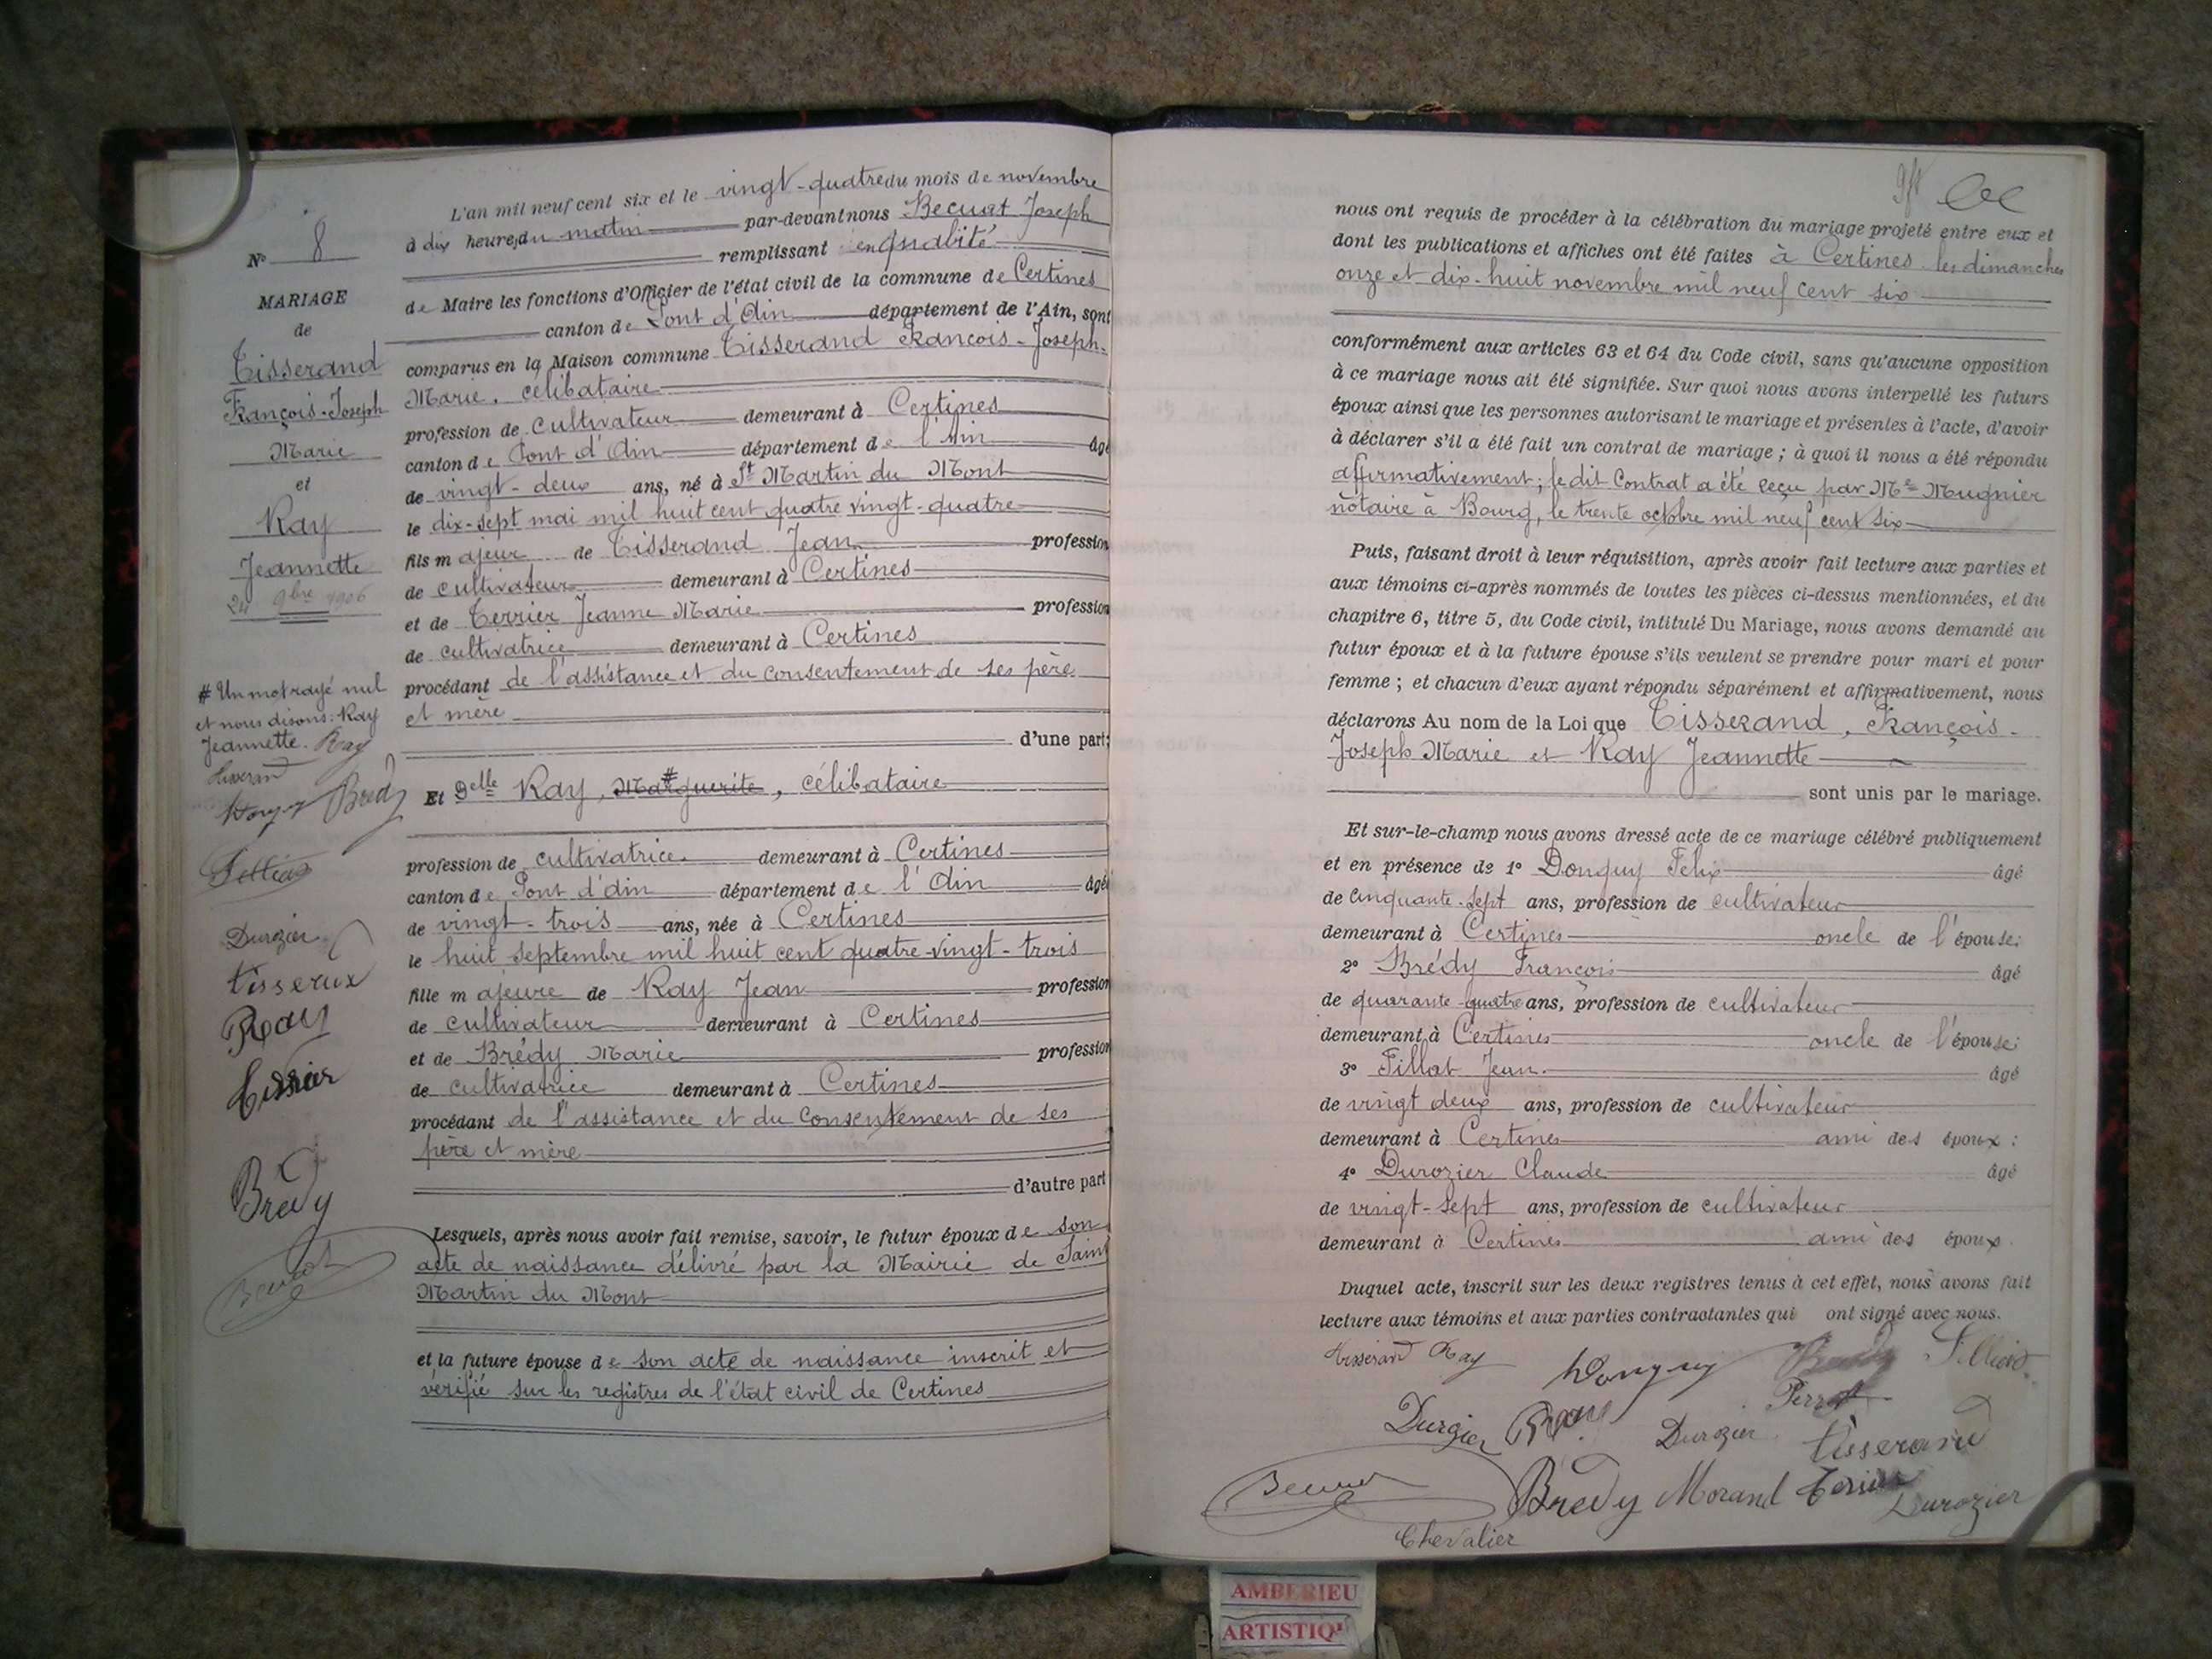 N° 8
MARIAGE
de
Tisserand
François-Joseph
Marie
et
Ray
Jeannette
24 9bre 1906
# Un mot rayé nul
et nous disons: Ray
Jeannette. Ray
Tisserand
Donguy Brédy
Durozier
Ray
Bredy
L'an mil neuf cent six et le vingt-quatre du mois de novembre
à dix heures du matin par-devant nous Becuat Joseph
remplissant en qualité
de Maire les fonctions d'Officier de l'état civil de la commune de Certines
canton de Pont d'Ain département de l'Ain, sont
comparus en la Maison commune Tisserand François-Joseph-
Marie, célibataire
profession de cultivateur demeurant à Certines
canton de Pont d'Ain département de l'Ain âgé
de vingt-deux ans, né à St Martin du Mont
le dix-sept mai mil huit cent quatre vingt-quatre
fils majeur de Tisserand Jean profession
de cultivateur demeurant à Certines
et de Terrier Jeanne Marie profession
de cultivatrice demeurant à Certines
procédant de l'assistance et du consentement de ses père
et mère
d'une part;
Et Delle Ray, Marguerite #, célibataire
profession de cultivatrice demeurant à Certines
canton de Pont d'Ain département de l'Ain âgée
de vingt-trois ans, née à Certines
le huit septembre mil huit cent quatre-vingt-trois
fille majeure de Ray Jean profession
de cultivateur demeurant à Certines
et de Brédy Marie profession
de cultivatrice demeurant à Certines
procédant de l'assistance et du consentement de ses
père et mère
d'autre part
Lesquels, après nous avoir fait remise, savoir, le futur époux de son
acte de naissance délivré par la Mairie de Saint
Martin du Mont
et la future épouse de son acte de naissance inscrit et
vérifié sur les registres de l'état civil de Certines
nous ont requis de procéder à la célébration du mariage projeté entre eux et
dont les publications et affiches ont été faites à Certines les dimanches
onze et dix-huit novembre mil neuf cent six
conformément aux articles 63 et 64 du Code civil, sans qu'aucune opposition
à ce mariage nous ait été signifiée. Sur quoi nous avons interpellé les futurs
époux ainsi que les personnes autorisant le mariage et présentes à l'acte, d'avoir
à déclarer s'il a été fait un contrat de mariage; à quoi il nous a été répondu
affirmativement; le dit Contrat a été reçu par Me Mugnier
notaire à Bourg, le trente octobre mil neuf cent six
Puis, faisant droit à leur réquisition, après avoir fait lecture aux parties et
aux témoins ci-après nommés de toutes les pièces ci-dessus mentionnées, et du
chapitre 6, titre 5, du Code civil, intitulé Du Mariage, nous avons demandé au
futur époux et à la future épouse s'ils veulent se prendre pour mari et pour
femme; et chacun d'eux ayant répondu séparément et affirmativement, nous
déclarons Au nom de la Loi que Tisserand, François-
Joseph Marie et Ray Jeannette
sont unis par le mariage.
Et sur-le-champ nous avons dressé acte de ce mariage célébré publiquement
et en présence de 1° Donguy Félix âgé
de cinquante-sept ans, profession de cultivateur
demeurant à Certines oncle de l'épouse;
2° Brédy François âgé
de quarante-quatre ans, profession de cultivateur
demeurant à Certines oncle de l'épouse;
3° Filliat Jean âgé
de vingt deux ans, profession de cultivateur
demeurant à Certines ami des époux;
4° Durozier Claude âgé
de vingt-sept ans, profession de cultivateur
demeurant à Certines ami des époux.
Duquel acte, inscrit sur les deux registres tenus à cet effet, nous avons fait
lecture aux témoins et aux parties contractantes qui ont signé avec nous.
Tisserand Ray Donguy Filliat
Ray Durozier Tisserand
Bredy Morand Durozier
Chevalier
AMBERIEU
ARTISTIQ